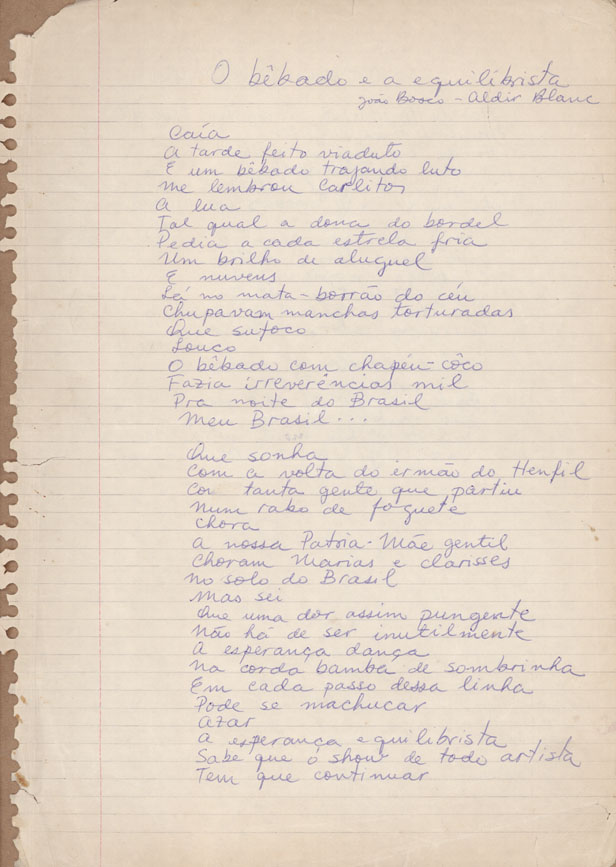 O bêbado e a equilibrista
João Bosco - Aldir Blanc
Caía
A tarde feito viaduto
E um bêbado trajando luto
Me lembrou Carlitos
A lua
Tal qual a dona do bordel
Pedia a cada estrela fria
Um brilho de aluguel
E nuvens
Lá no mata-borrão do céu
Chupavam manchas torturadas
Que sufoco
Louco
O bêbado com chapéu-côco
Fazia irreverências mil
Pra noite do Brasil
Meu Brasil...
Que sonha
Com a volta do irmão do Henfil
Com tanta gente que partiu
Num rabo de foguete
Chora
A nossa Patria-Mãe gentil
Choram Marias e clarisses
No solo do Brasil
Mas sei
Que uma dor assim pungente
Não há de ser inutilmente
A esperança dança
Na corda bamba de sombrinha
Em cada passo dessa linha
Pode se machucar
Azar
A esperança equilibrista
Sabe que o show de todo artista
Tem que continuar